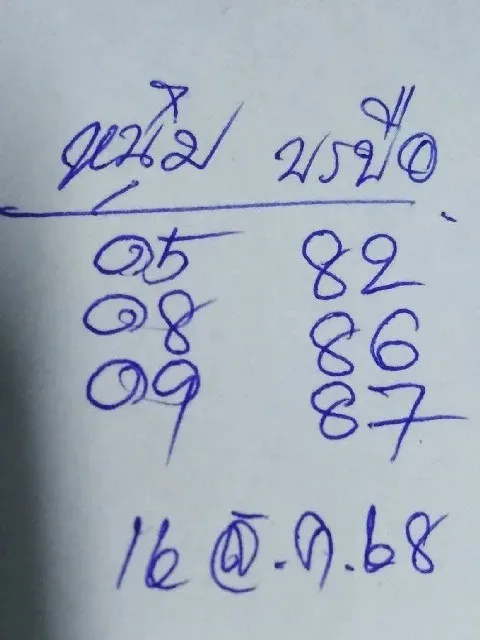 หนุ่ม บรบือ
05 82
08 86
09 87
16 ส.ค.68